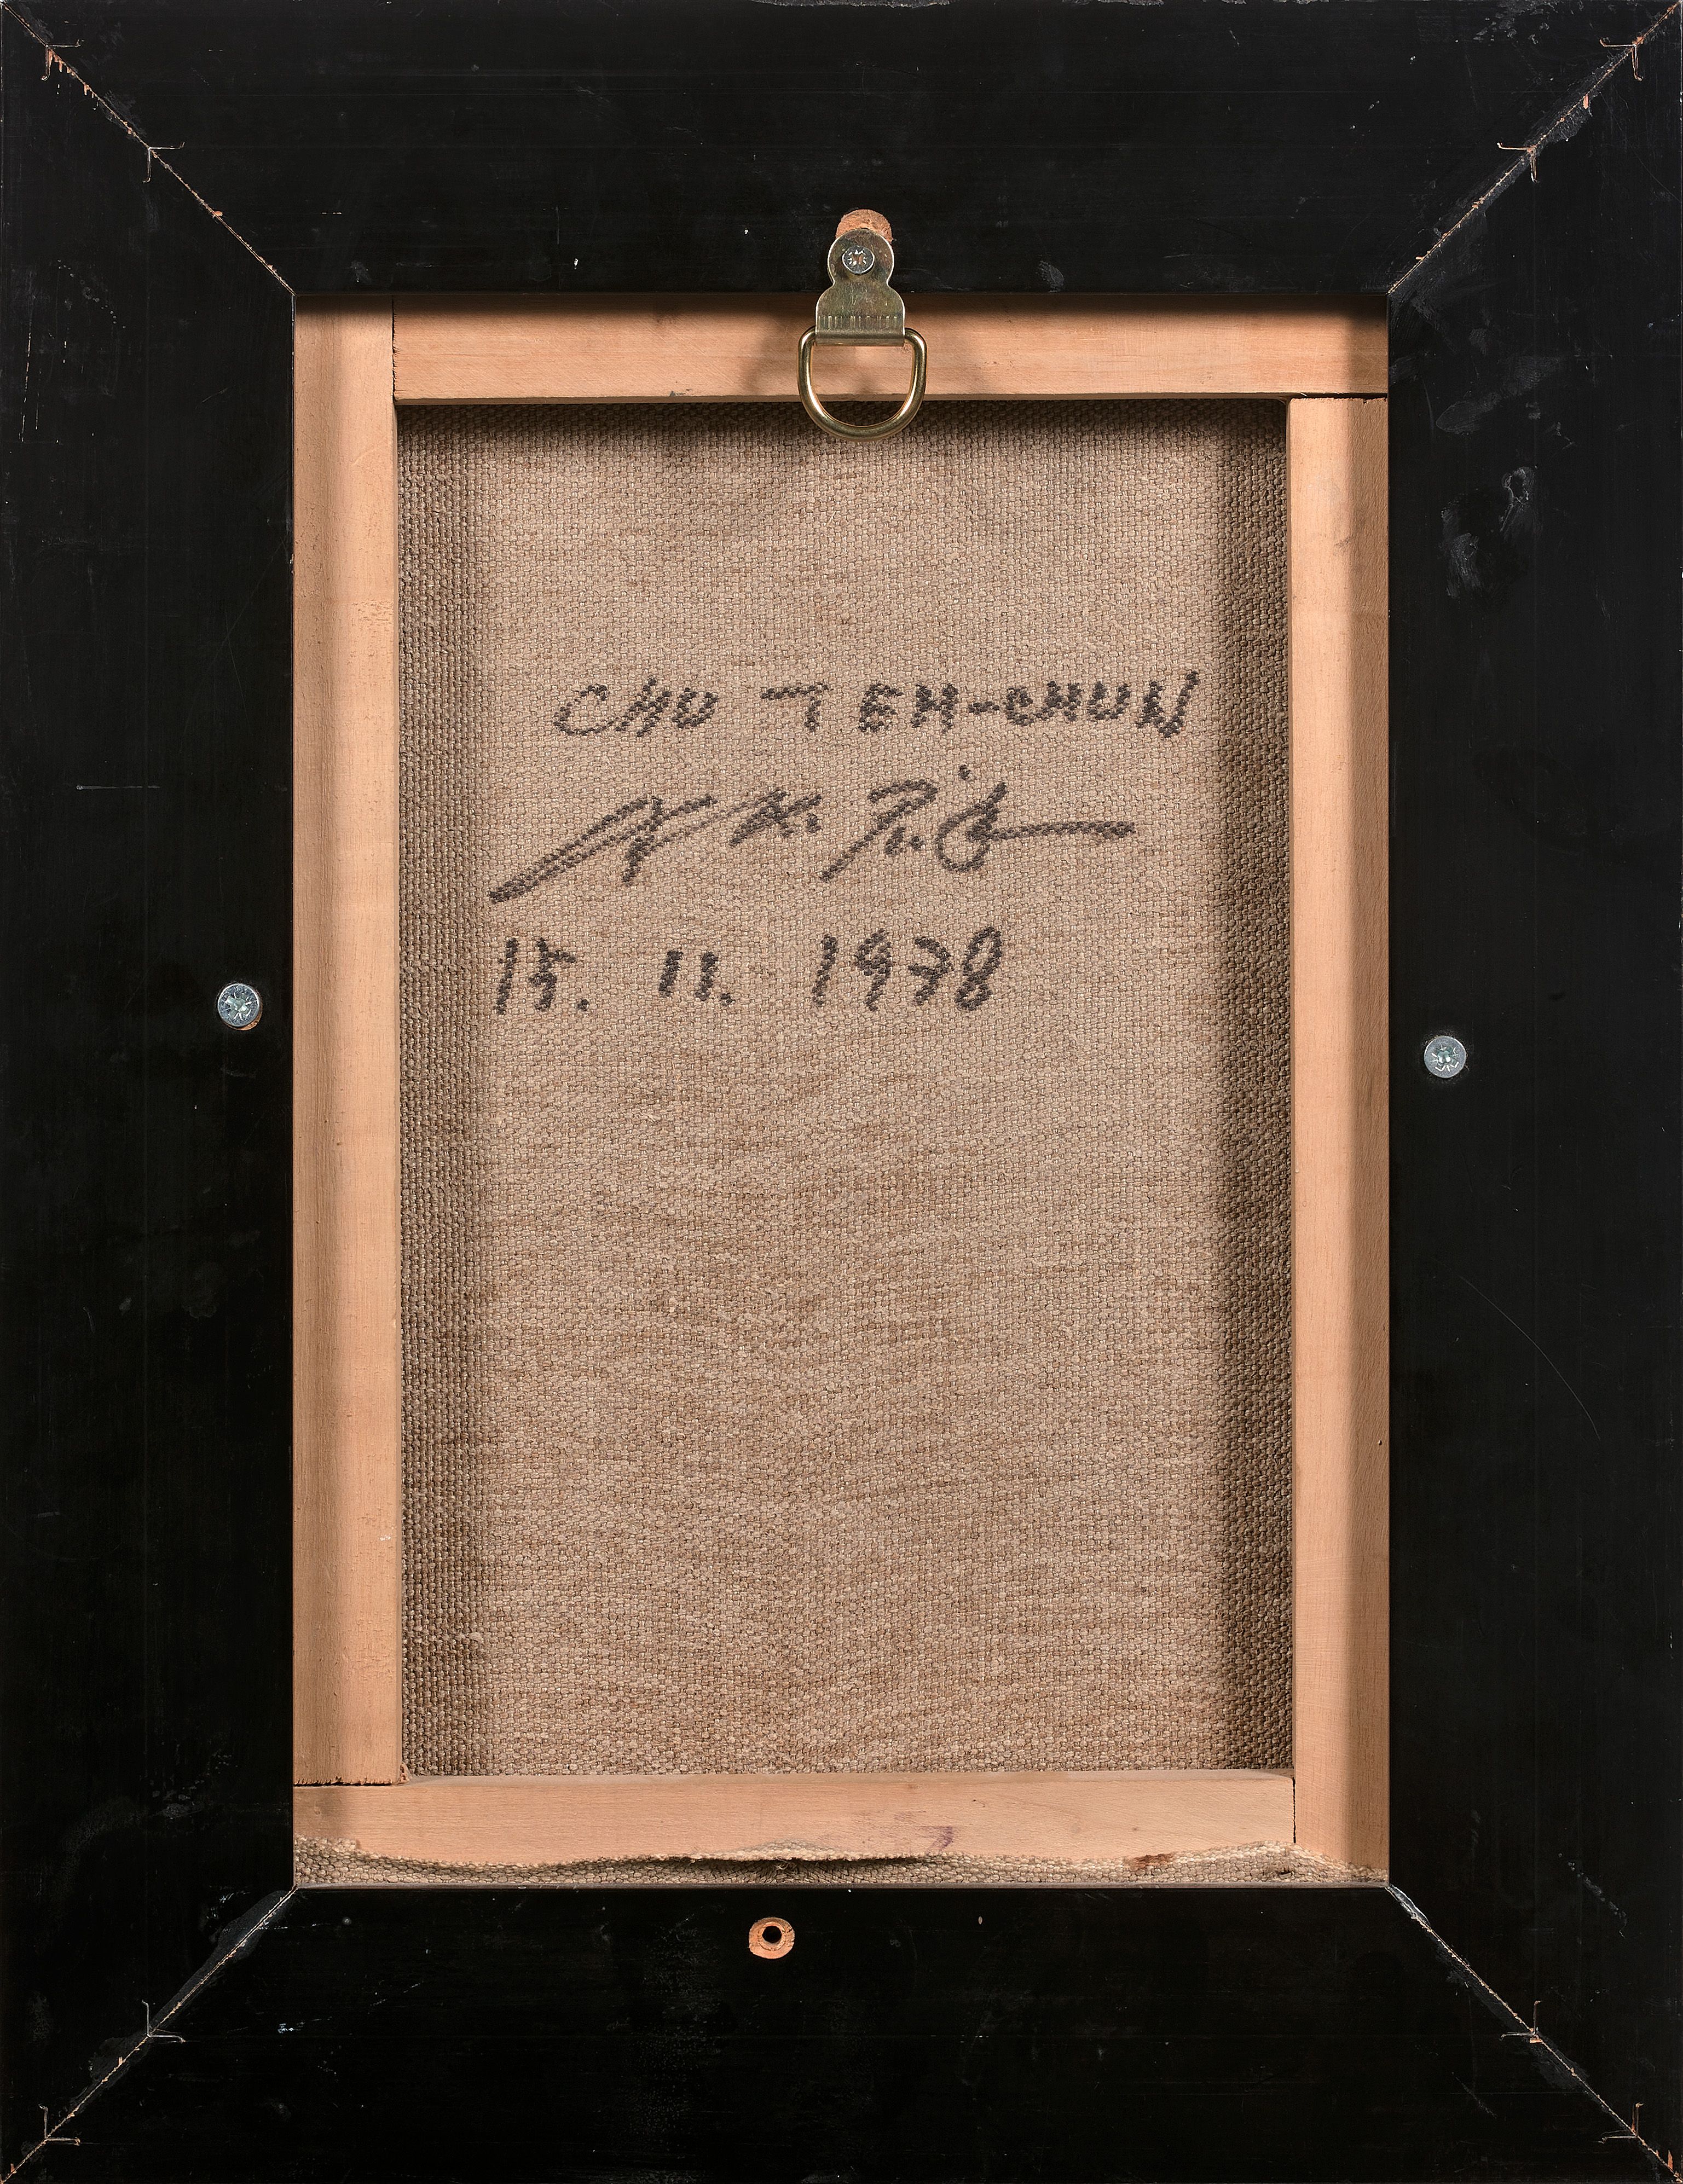 CHU TEH-CHUN
15. 11. 1978